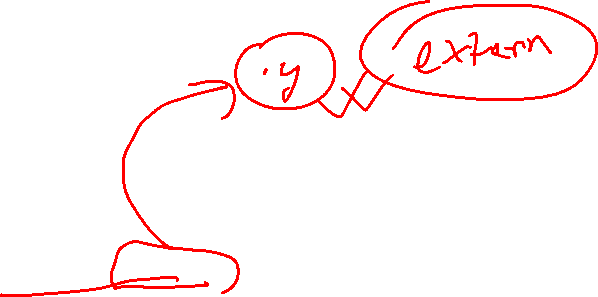 .y extern